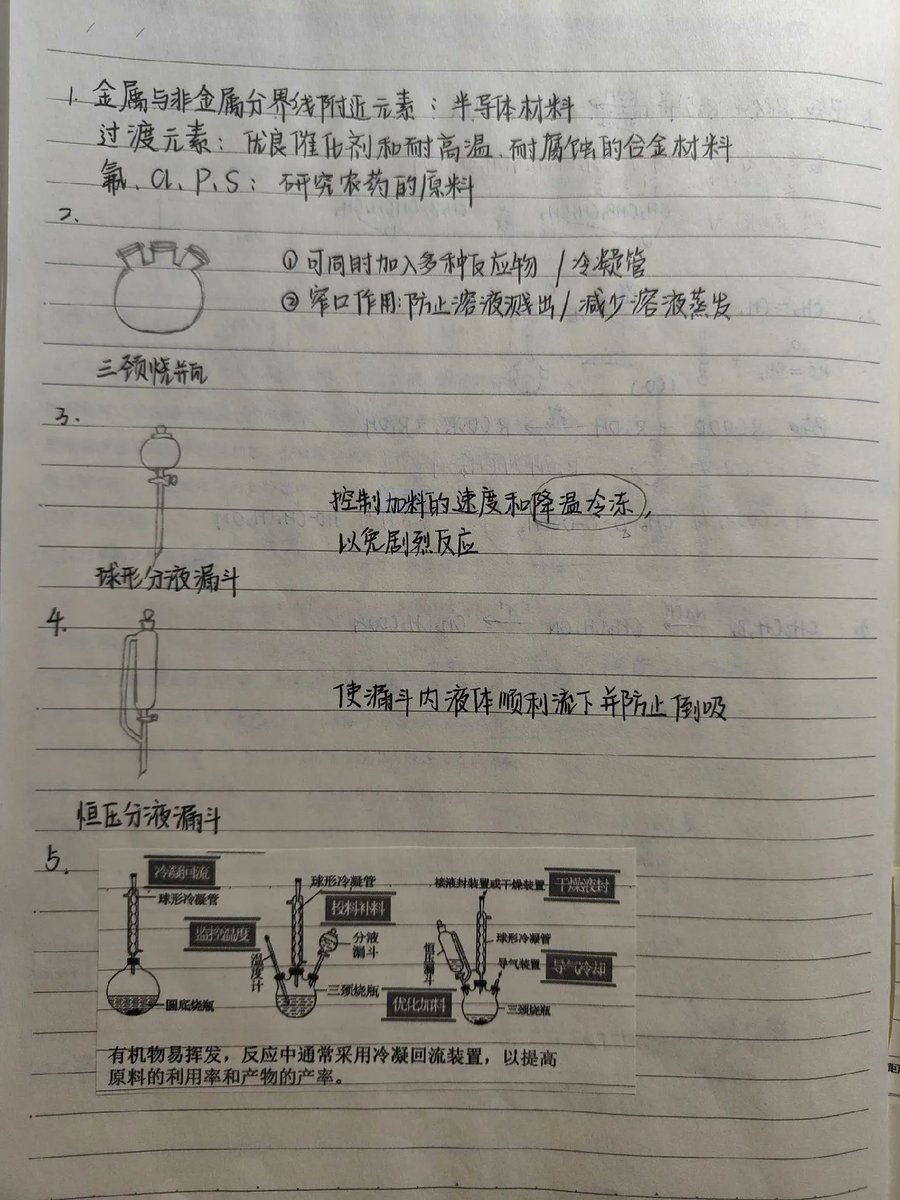 1. 金属与非金属分界线附近元素：半导体材料
过渡元素：优良催化剂和耐高温、耐腐蚀的合金材料
氟、Cl、P、S：研究农药的原料
2.
① 可同时加入多种反应物 / 冷凝管
② 窄口作用：防止溶液溅出 / 减少溶液蒸发
三颈烧瓶
3.
控制加料的速度和降温冷冻，
以免剧烈反应
球形分液漏斗
4.
使漏斗内液体顺利流下并防止倒吸
恒压分液漏斗
5.
冷凝回流
球形冷凝管
圆底烧瓶
球形冷凝管
投料补料
监控温度
分液漏斗
温度计
三颈烧瓶
接液封装置或干燥装置
干燥液封
恒压漏斗
球形冷凝管
导气装置
导气冷却
优化加料
三颈烧瓶
有机物易挥发，反应中通常采用冷凝回流装置，以提高
原料的利用率和产物的产率。